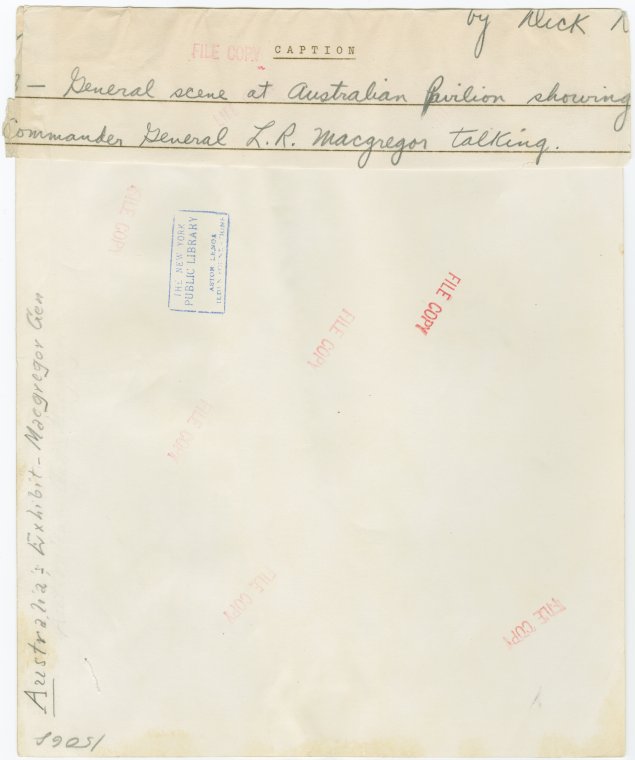 by Dick
FILE COPY
CAPTION
3 — General scene at Australian Pavilion showing
Commander General L.R. Macgregor talking.
FILE COPY
THE NEW YORK
PUBLIC LIBRARY
ASTOR LENOX
TILDEN FOUNDATIONS
FILE COPY
FILE COPY
FILE COPY
FILE COPY
FILE COPY
Australia; Exhibit - Macgregor Gen